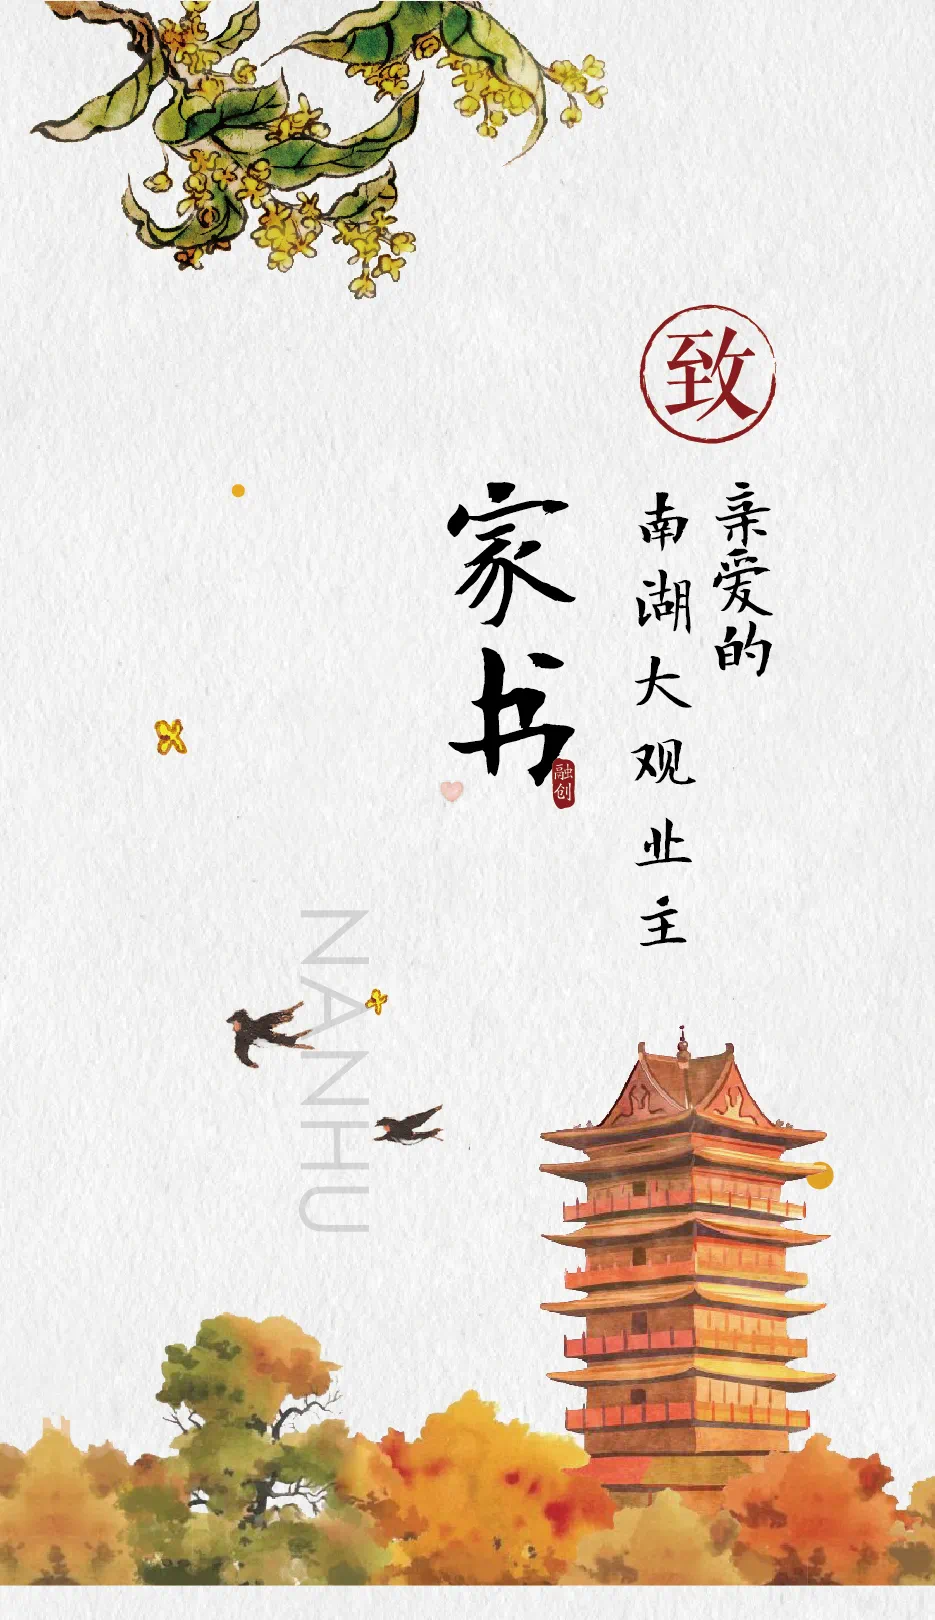 致
亲爱的
南湖大观业主
家书
融创
NANHU